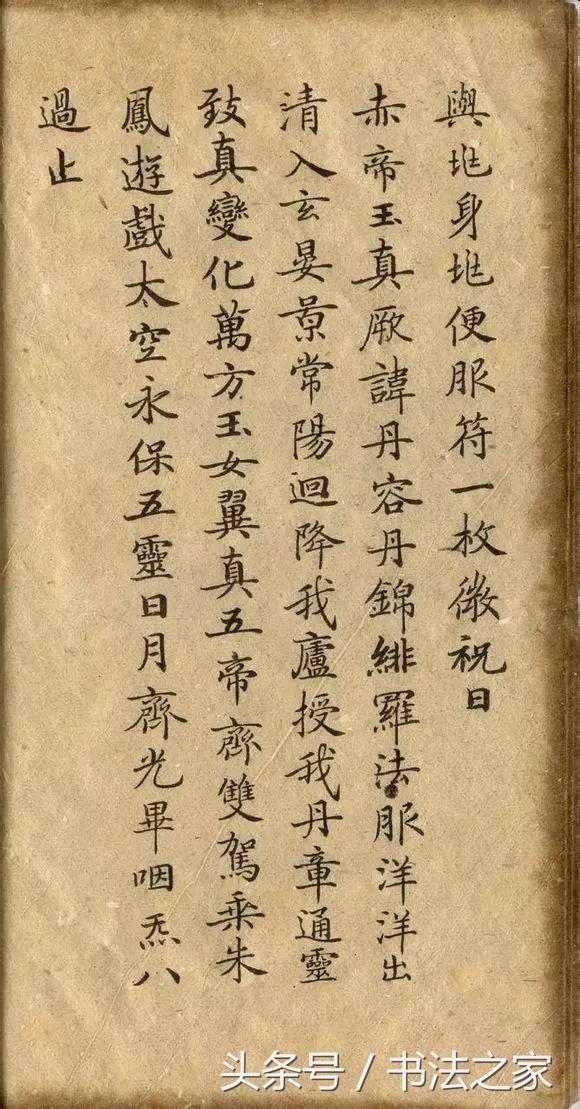 與兆身兆便服符一枚微祝曰
赤帝玉真厥諱丹容丹錦緋羅法服洋洋出
清入玄晏景常陽迴降我廬授我丹章通靈
致真變化萬方玉女翼真五帝齊雙駕乘朱
鳳遊戲太空永保五靈日月齊光畢咽炁八
過止
头条号 / 书法之家